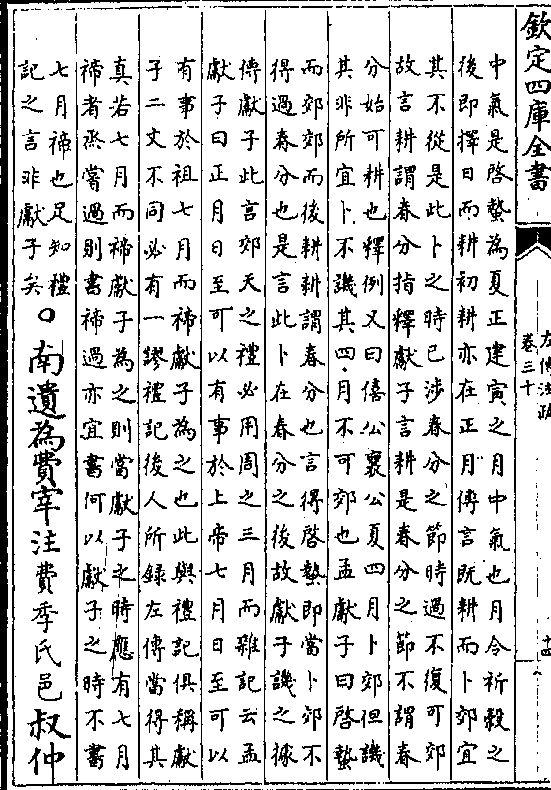 欽定四庫全書
左傳注疏
卷三十
十四
中氣是啓蟄為夏正建寅之月中氣也月令祈穀之
後即擇日而耕初耕亦在正月傳言既耕而卜郊宜
其不從是此卜之時已涉春分之節時過不復可郊
故言耕謂春分指釋獻子言耕是春分之節不謂春
分始可耕也釋例又曰僖公襄公夏四月卜郊但譏
其非所宜卜不譏其四月不可郊也孟獻子曰啓蟄
而郊郊而後耕耕謂春分也言得啓蟄即當卜郊不
得過春分也是言此卜在春分之後故獻子譏之據
傳獻子此言郊天之禮必用周之三月而雜記云孟
獻子曰正月日至可以有事於上帝七月日至可以
有事於祖七月而禘獻子為之也此與禮記俱稱獻
子二文不同必有一謬禮記後人所録左傳當得其
真若七月而禘獻子為之則當獻子之時應有七月
禘者烝嘗過則書禘過亦宜書何以獻子之時不書
七月禘也足知禮
記之言非獻子矣
○南遺為費宰注費季氏邑叔仲